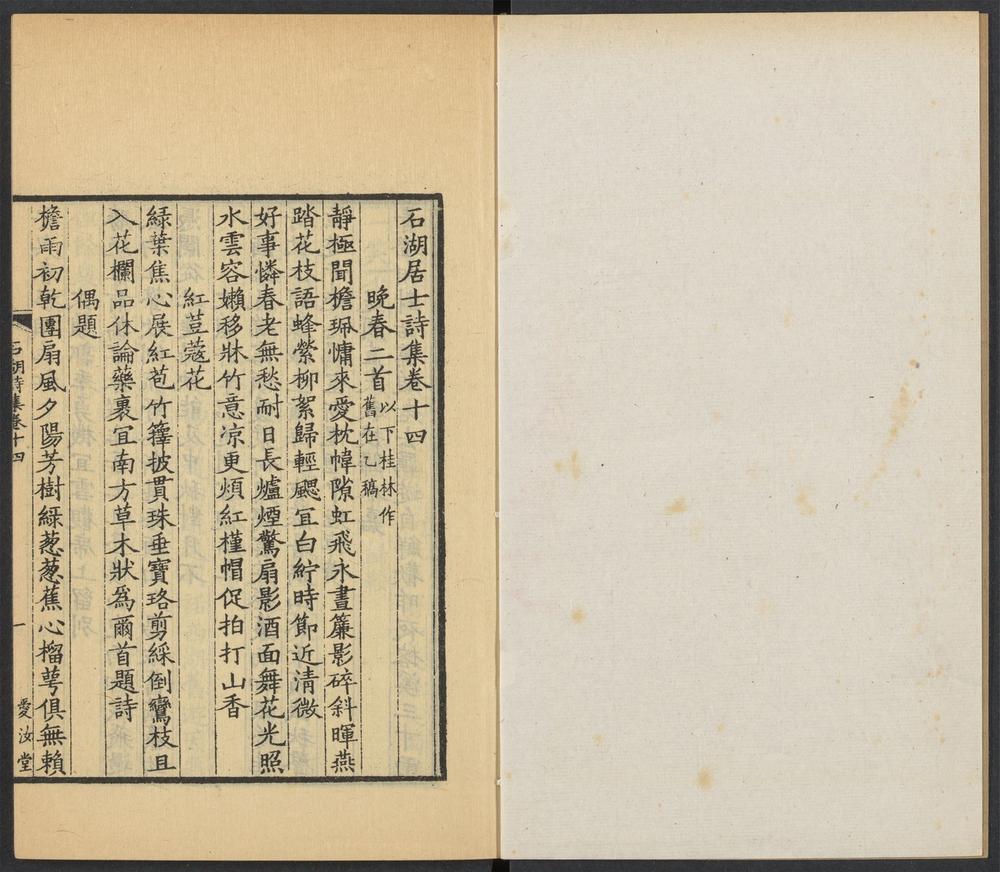 石湖居士詩集卷十四
晚春二首 以下桂林作 舊在乙稿
靜極聞檐珮慵來愛枕幃隙虹飛永晝簾影碎斜暉燕
踏花枝語蜂縈柳絮歸輕颸宜白紵時節近清微
好事憐春老無愁耐日長爐煙驚扇影酒面舞花光照
水雲容嬾移牀竹意凉更煩紅槿帽促拍打山香
紅荳蔻花
綠葉焦心展紅苞竹籜披貫珠垂寶珞剪綵倒鸞枝且
入花欄品休論藥裹宜南方草木狀爲爾首題詩
偶題
檐雨初乾團扇風夕陽芳樹綠葱葱蕉心榴萼俱無賴
石湖詩集卷十四 一 愛汝堂